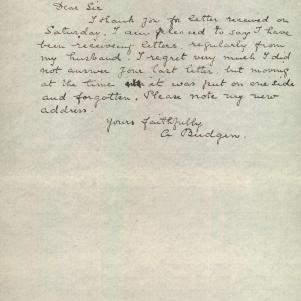 Dear Sir
I thank you for letter received on
Saturday. I am pleased to say I have
been receiving letters, regularly from
my husband. I regret very much I did
not answer your last letter, but moving
at the time it was put on one side
and forgotten. Please note my new
address.
Yours faithfully
A Budgen.